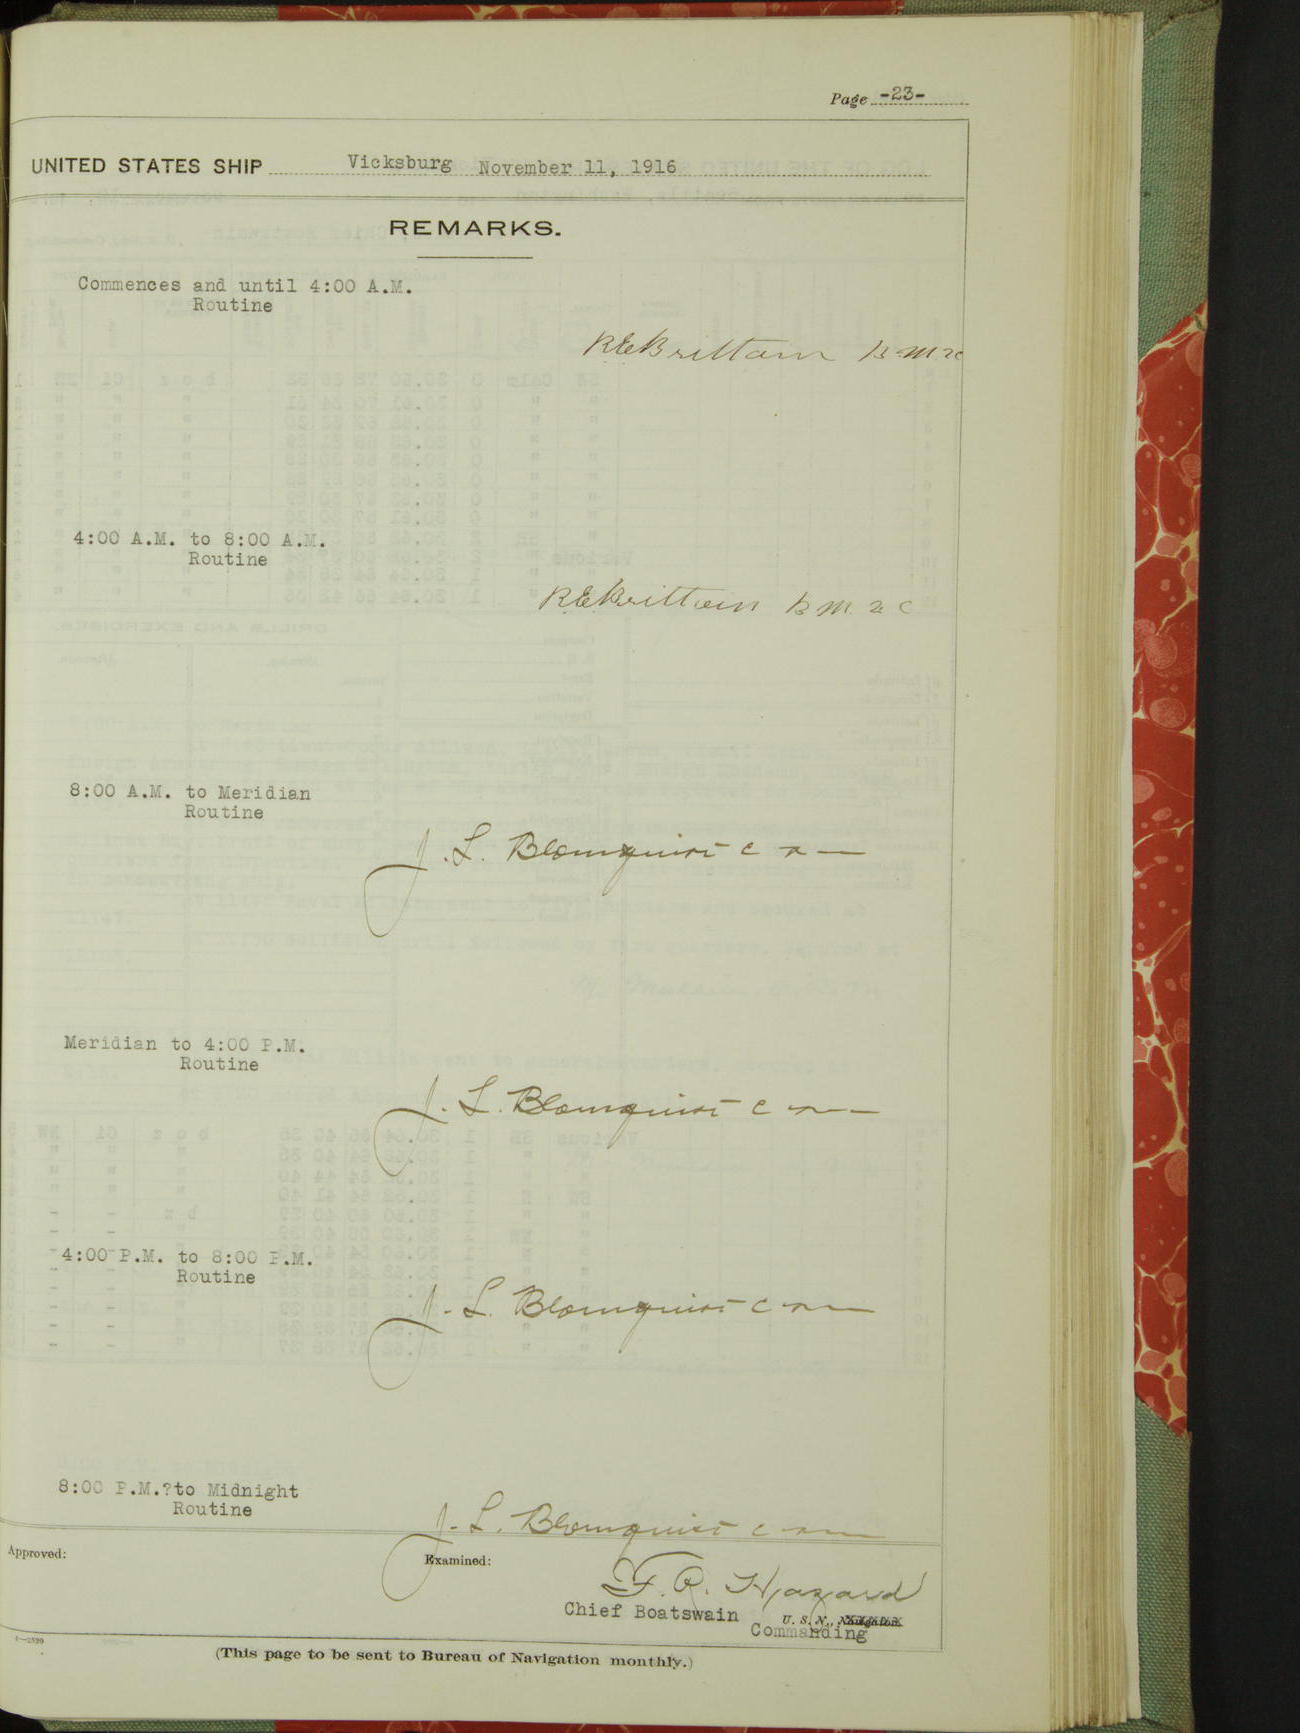 Page -23-
UNITED STATES SHIP Vicksburg November 11, 1916
REMARKS.
Commences and until 4:00 A.M.
Routine
R.E. Brittain B M 2c
4:00 A.M. to 8:00 A.M.
Routine
R.E. Brittain B M 2 C
8:00 A.M. to Meridian
Routine
J. L. Blomquist
Meridian to 4:00 P.M.
Routine
J. L. Blomquist
4:00 P.M. to 8:00 P.M.
Routine
J. L. Blomquist
8:00 P.M.?to Midnight
Routine
J. L. Blomquist
Approved:
Examined:
F. R. Hazard
Chief Boatswain U. S. N.,
Commanding
(This page to be sent to Bureau of Navigation monthly.)